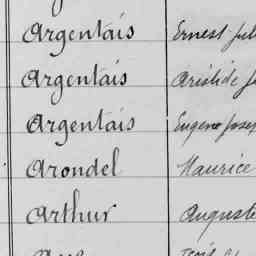 Argentais Ernest
Argentais Aristide
Argentais Eugène
Arondel Maurice
Arthur Auguste